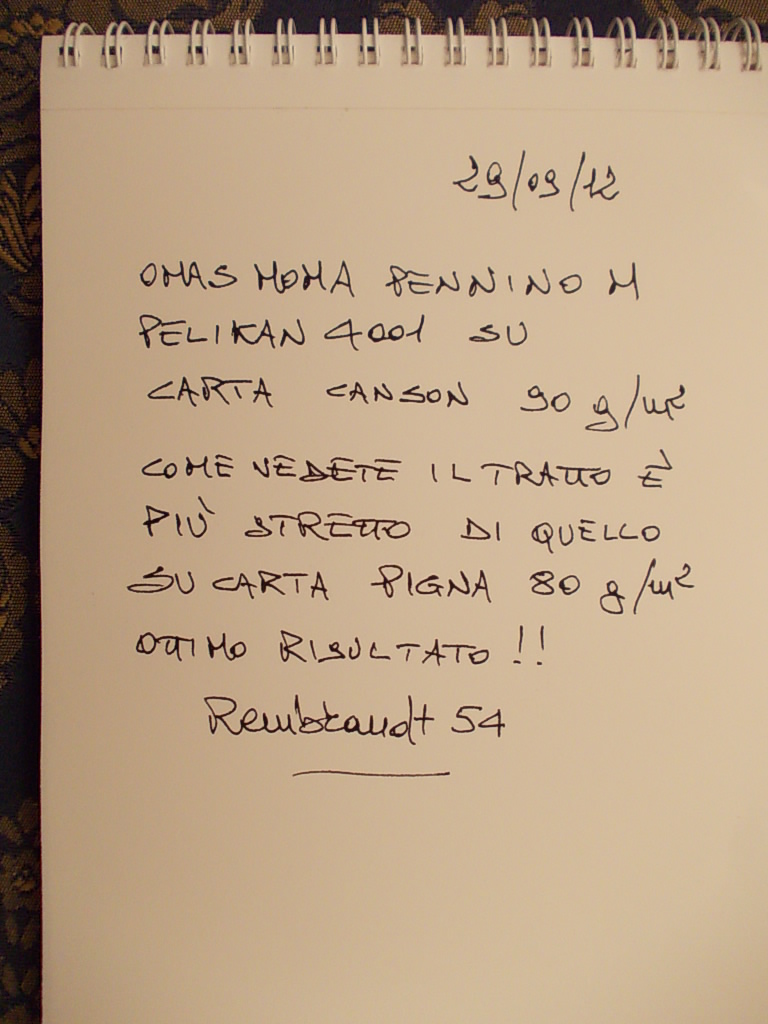 29/09/12
OMAS MOMA PENNINO M
PELIKAN 4001 SU
CARTA CANSON 90 g/m²
COME VEDETE IL TRATTO È
PIÙ STRETTO DI QUELLO
SU CARTA PIGNA 80 g/m²
OTTIMO RISULTATO !!
Rembrandt 54